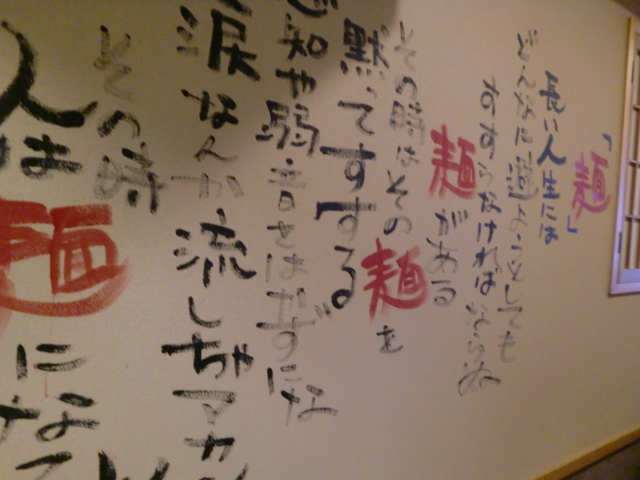 「麺」
長い人生には
どんなに避ようとしても
すすらなければならぬ
麺がある
その時はその麺を
黙ってすする
知や弱音をはかずにな
涙なんか流しちゃマカ
その時
人は麺になっ